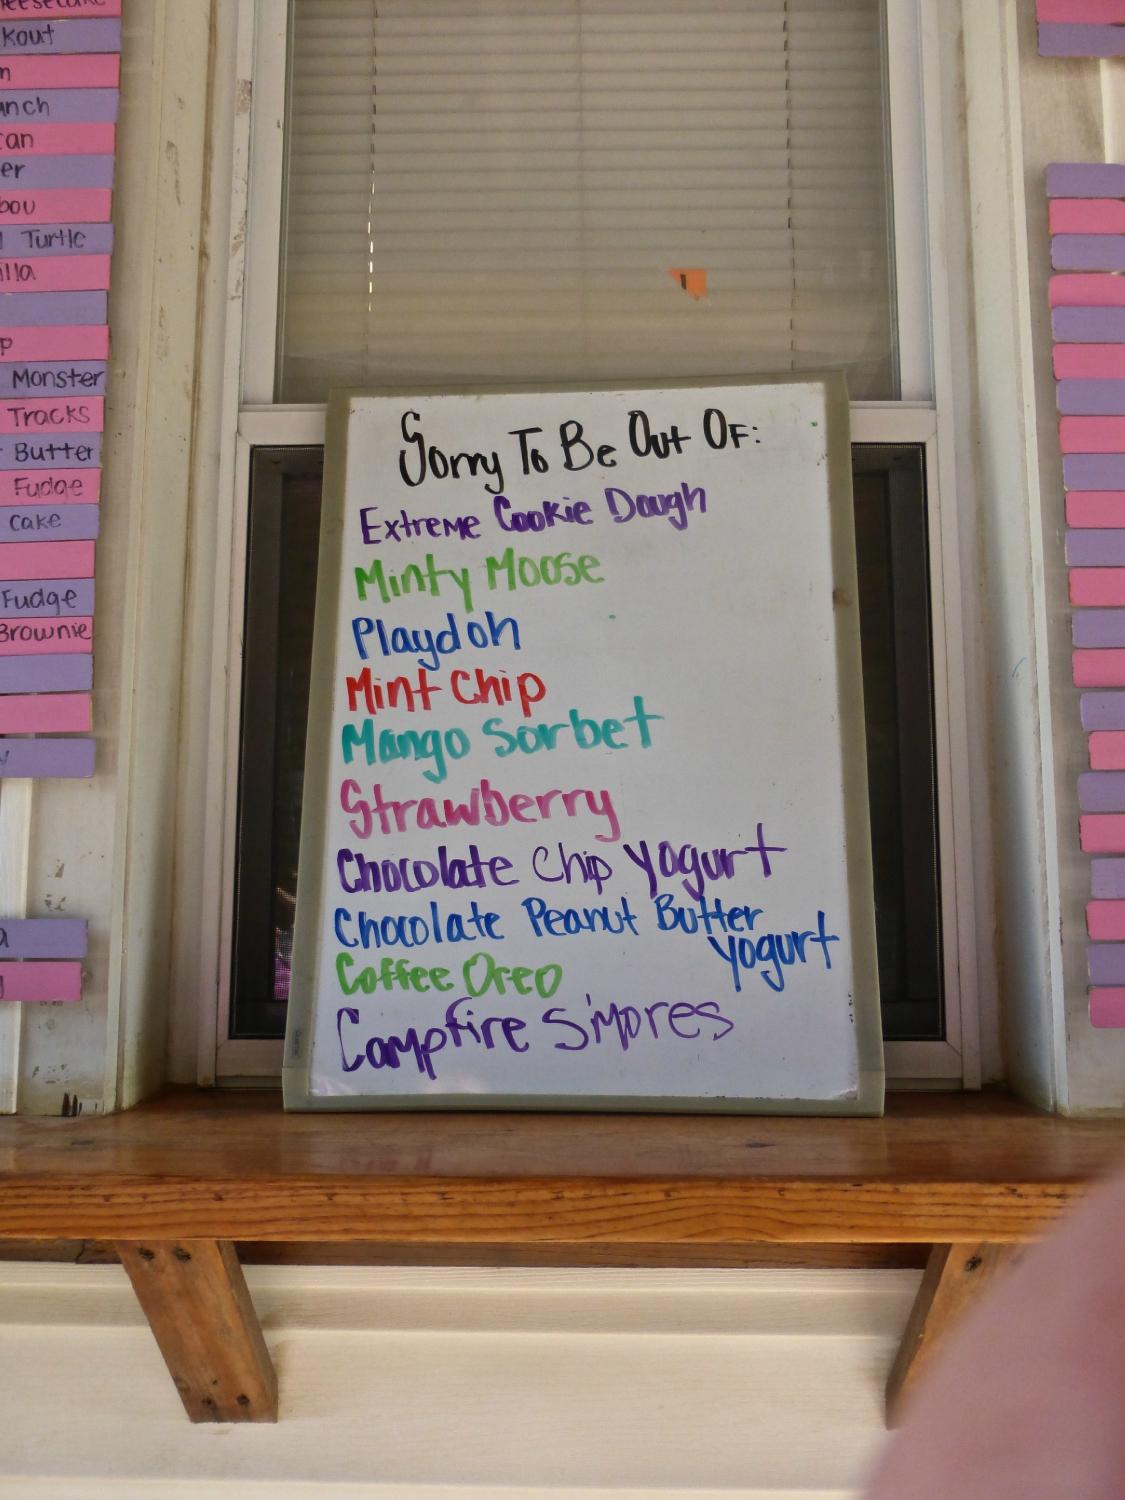 kout
Turtle
Monster
Tracks
Butter
Fudge
cake
Fudge
Brownie
Sorry To Be Out Of:
Extreme Cookie Dough
Minty Moose
Playdoh
Mint Chip
Mango Sorbet
Strawberry
Chocolate Chip Yogurt
Chocolate Peanut Butter
Yogurt
Coffee Oreo
Campfire S'mores